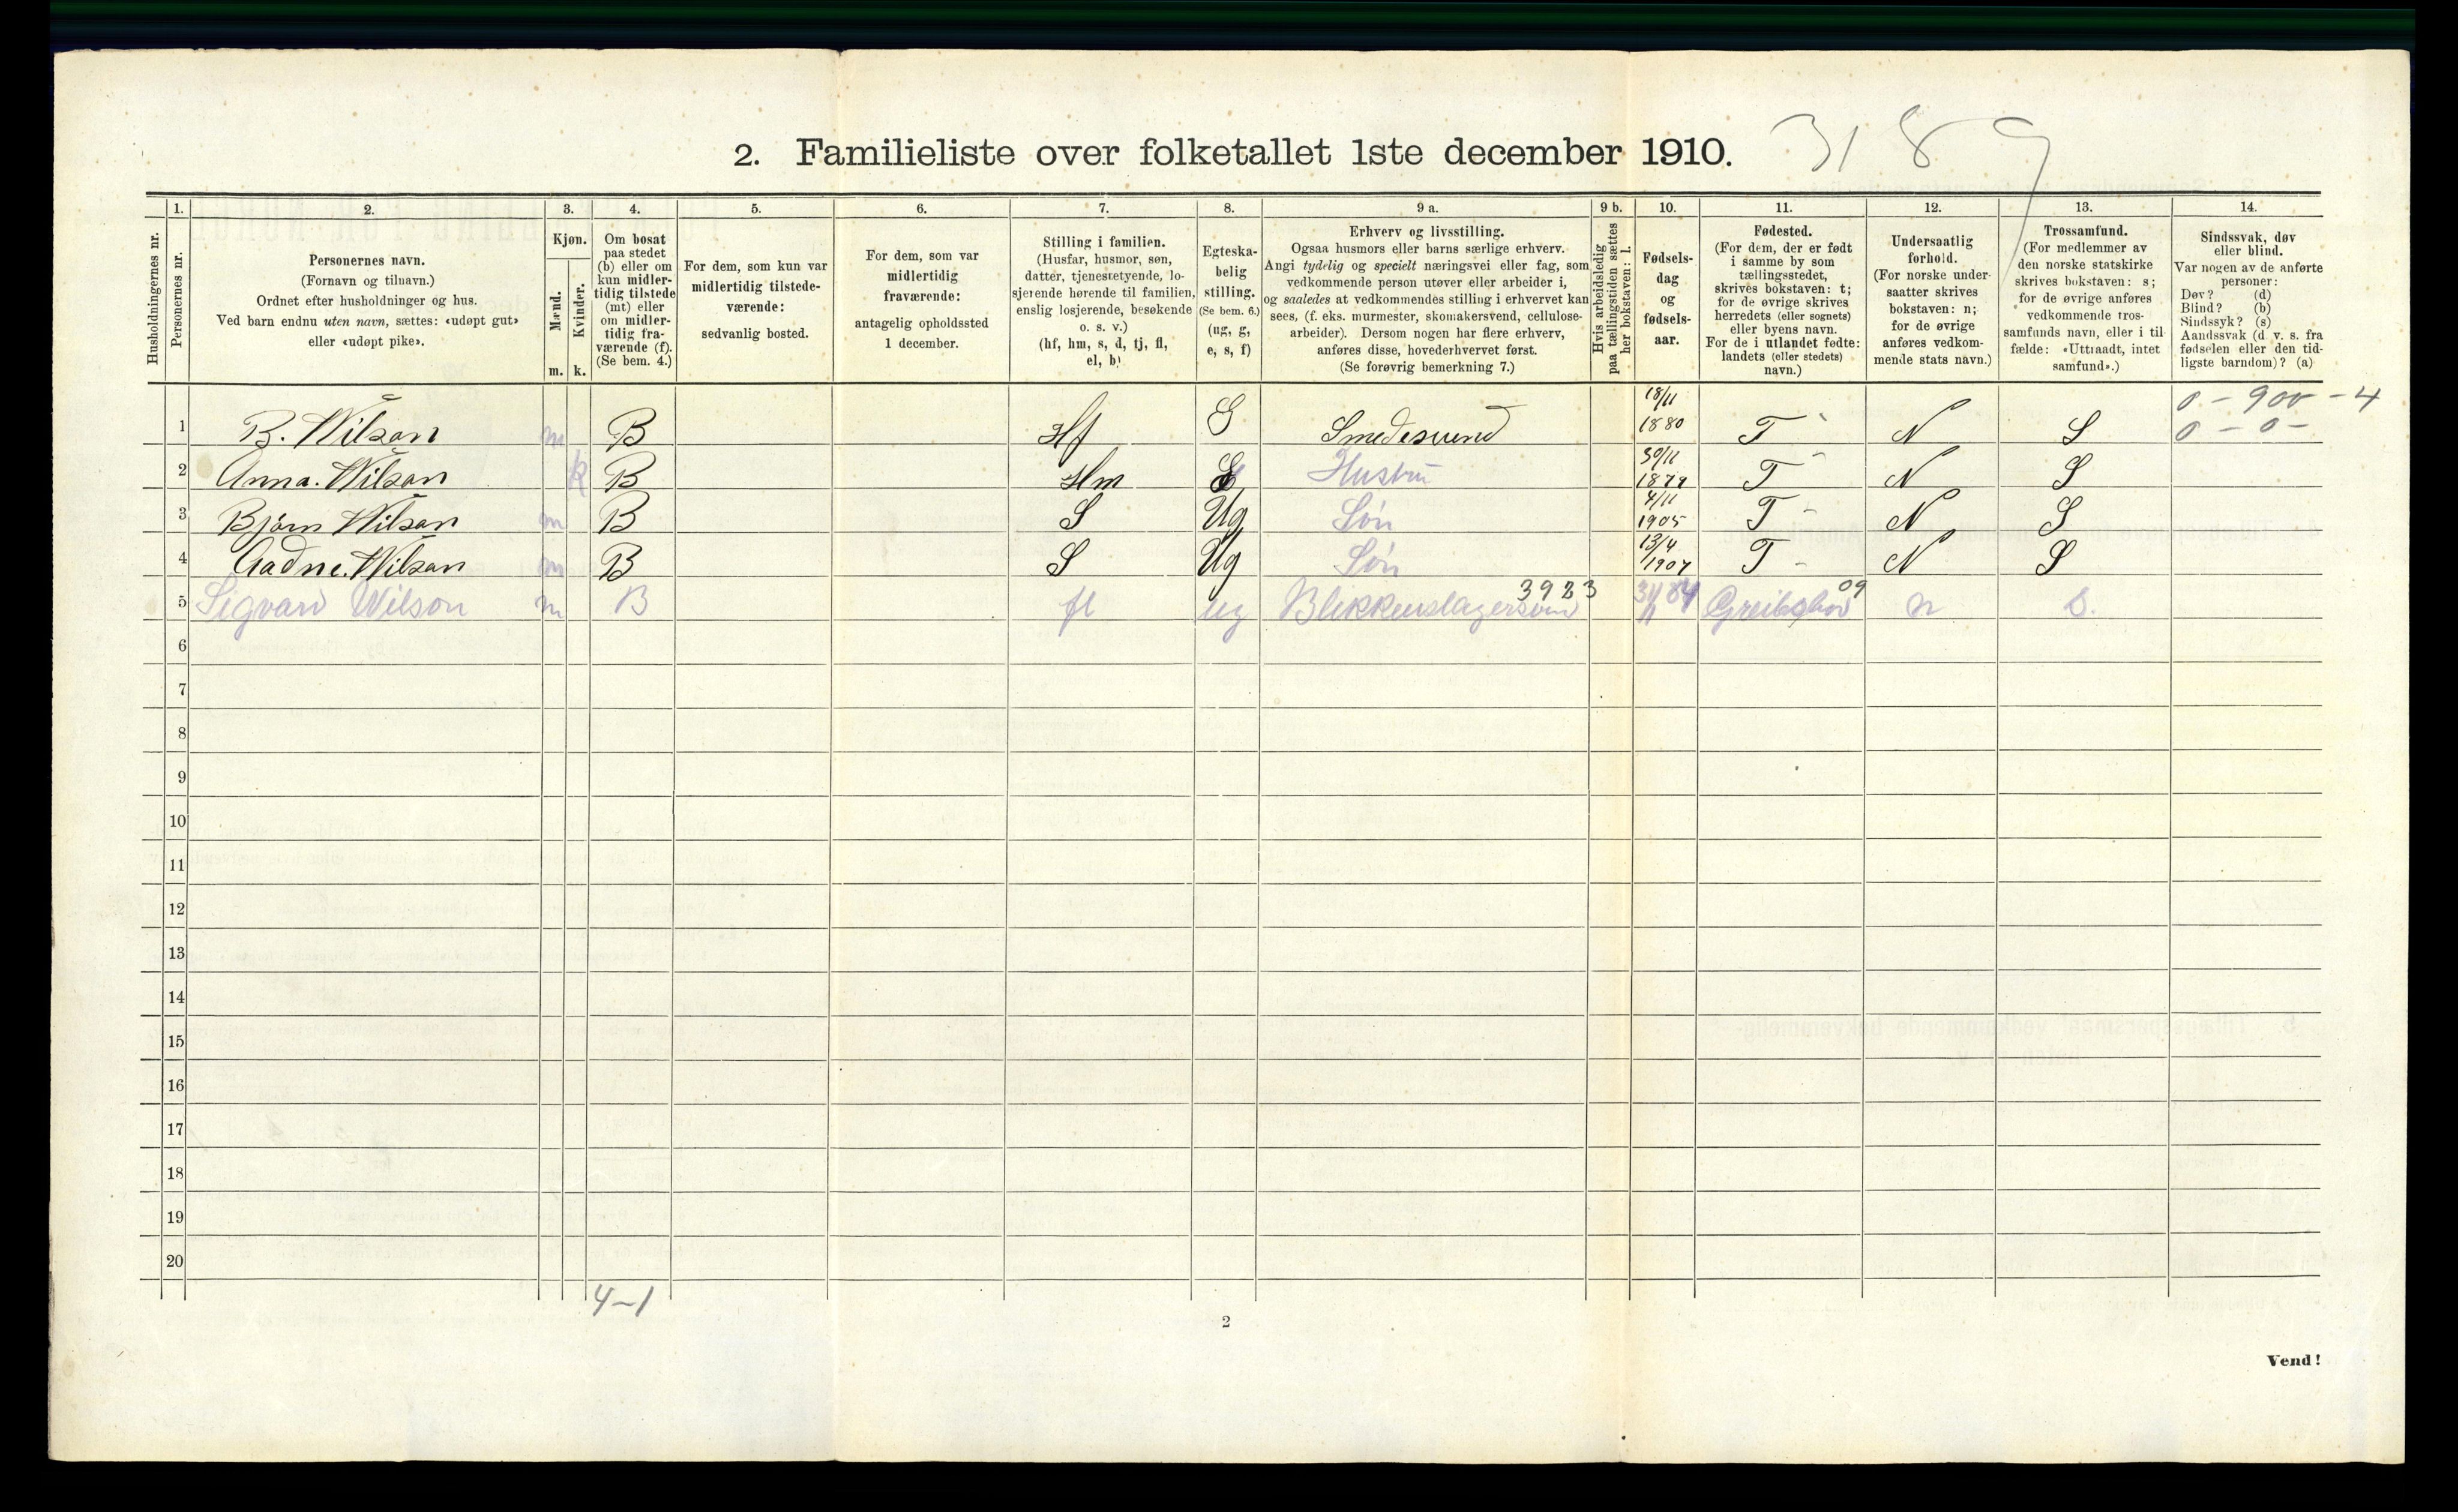 2. Familieliste over folketallet 1ste december 1910. 3189
1. 2. 3. 4. 5. 6. 7. 8. 9 a. 9 b. 10. 11. 12. 13. 14.
Husholdningernes nr.
Personernes nr.
Personernes navn.
(Fornavn og tilnavn.)
Ordnet efter husholdninger og hus.
Ved barn endnu uten navn, sættes: «udøpt gut»
eller «udøpt pike».
Kjøn.
Mænd.
Kvinder.
m. k.
Om bosat
paa stedet
(b) eller om
kun midler-
tidig tilstede
(mt) eller
om midler-
tidig fra-
værende (f).
(Se bem. 4.)
For dem, som kun var
midlertidig tilstede-
værende:
sedvanlig bosted.
For dem, som var
midlertidig
fraværende:
antagelig opholdssted
1 december.
Stilling i familien.
(Husfar, husmor, søn,
datter, tjenestetyende, lo-
sjerende hørende til familien,
enslig losjerende, besøkende
o. s. v.)
(hf, hm, s, d, tj, fl,
el, b)
Egteska-
belig
stilling.
(Se bem. 6.)
(ug, g,
e, s, f)
Erhverv og livsstilling.
Ogsaa husmors eller barns særlige erhverv.
Angi tydelig og specielt næringsvei eller fag, som
vedkommende person utøver eller arbeider i,
og saaledes at vedkommendes stilling i erhvervet kan
sees, (f. eks. murmester, skomakersvend, cellulose-
arbeider). Dersom nogen har flere erhverv,
anføres disse, hovederhvervet først.
(Se forøvrig bemerkning 7.)
Hvis arbeidsledig
paa tællingstiden sættes
her bokstaven: l.
Fødsels-
dag
og
fødsels-
aar.
Fødested.
(For dem, der er født
i samme by som
tællingsstedet,
skrives bokstaven: t;
for de øvrige skrives
herredets (eller sognets)
eller byens navn.
For de i utlandet fødte:
landets (eller stedets)
navn.)
Undersaatlig
forhold.
(For norske under-
saatter skrives
bokstaven: n;
for de øvrige
anføres vedkom-
mende stats navn.)
Trossamfund.
(For medlemmer av
den norske statskirke
skrives bokstaven: s;
for de øvrige anføres
vedkommende tros-
samfunds navn, eller i til
fælde: «Uttraadt, intet
samfund».)
Sindssvak, døv
eller blind.
Var nogen av de anførte
personer:
Døv? (d)
Blind? (b)
Sindssyk? (s)
Aandssvak (d. v. s. fra
fødselen eller den tid-
ligste barndom)? (a)
0 - 900 - 4
1 B. Wilson m B Hf G Smedesvend 18/11 1880 T N S 0 - 0 -
2 Anna. Wilson k B Hm G Hustru 30/11 1879 T N S
3 Bjørn Wilson m B S Ug Søn 4/11 1905 T N S
4 Aadne. Wilson m B S Ug Søn 13/4 1907 T N S
5 Sigvard Wilson m B fl ug Blikkenslagersvend 3923 84 09 n S.
6
7
8
9
10
11
12
13
14
15
16
17
18
19
20
4-1
2
Vend!